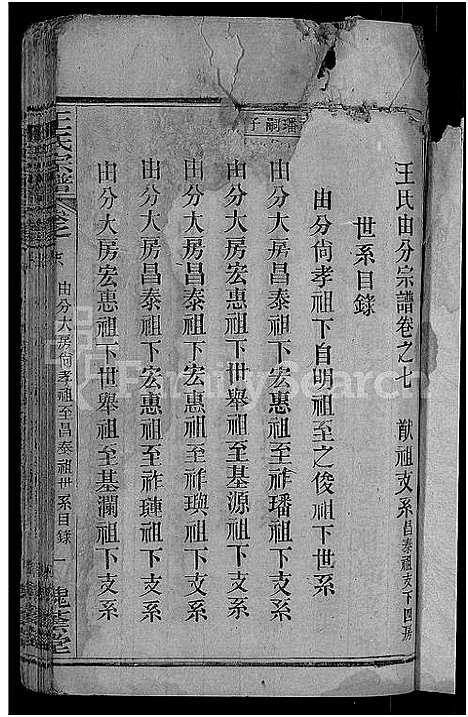 王氏由分宗譜卷之七 猷祖支系昌泰祖支下四房
世系目錄
由分尙孝祖下自明祖至之俊祖下世系
由分大房昌泰祖下宏惠祖至祚璠祖下支系
由分大房宏惠祖下世舉祖至基源祖下支系
由分大房昌泰祖下宏惠祖至祚璵祖下支系
由分大房昌泰祖下宏惠祖至祚璉祖下支系
由分大房宏惠祖下世舉祖至基瀾祖下支系
璠嗣子
王氏宗譜
卷七
由分大房尙孝祖至昌泰祖世系目錄
一
槐蔭堂
FamilySearch